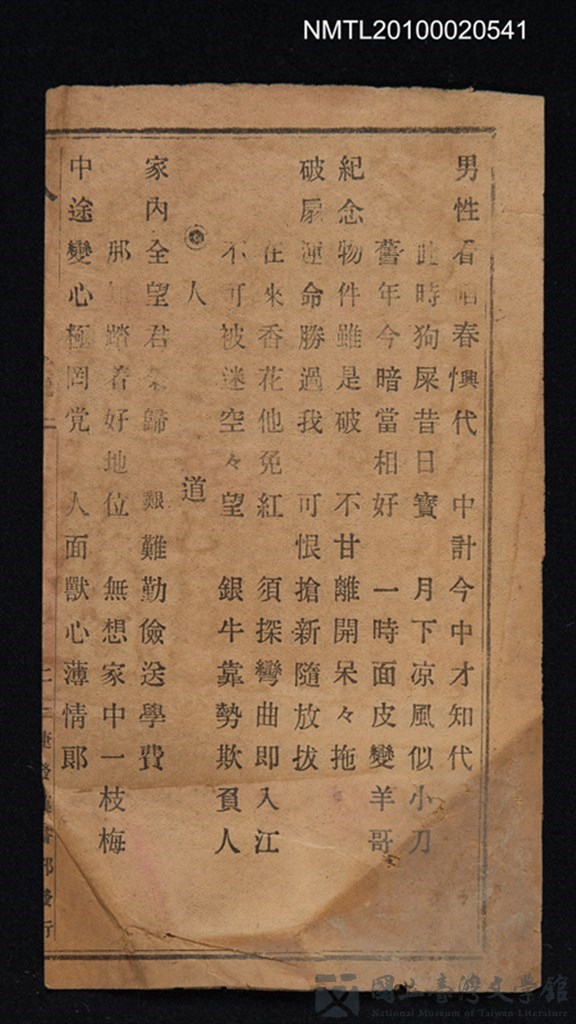 NMTL20100020541
男性看 春 代　中計今中才知代
時狗屎昔日寶　月下凉風似小刀
舊年今暗當相好　一時面皮變羊哥
紀念物件雖是破　不甘離開呆々拖
破扇運命勝過我　可恨搶新隨放拔
在來香花他免紅　須探彎曲即入江
不可被迷空々望　銀牛靠勢欺負人
◎人　道
家內全望君 歸　艱難勤儉送學費
那 踏着好地位　無想家中一枝梅
中途變心極罔党　人面獸心薄情郎
發 書部發行
國立臺灣文學館
National Museum of Taiwan Literature